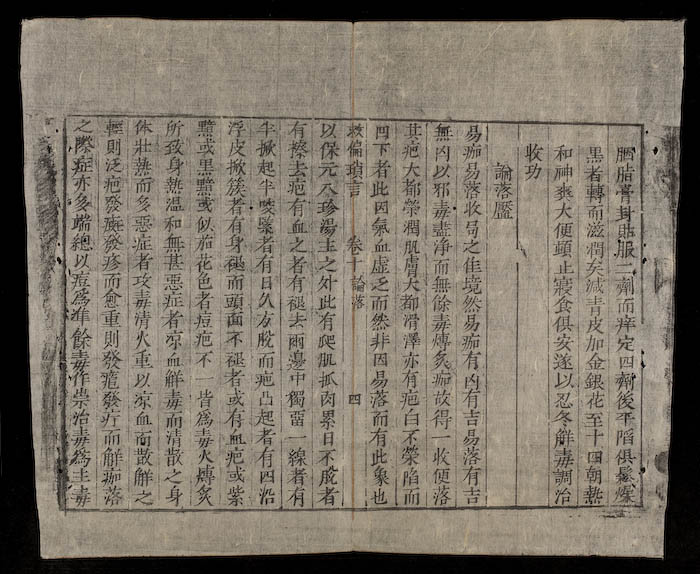 胭脂膏封貼服一劑而痒定四劑後平陷俱鬆燥
黑者轉而滋潤矣減青皮加金銀花至十四朝熱
和神爽大便頓止寢食俱安遂以忍冬解毒調治
收功
論落靨
易痂易落收局之佳境然易痂有凶有吉易落有吉
無凶以邪毒盡淨而無餘毒煿炙痂故得一收便落
其疤大都榮潤肌膚大都滑澤亦有疤白不榮陷而
凹下者此因氣血虛乏而然非因易落而有此象也
救偏瑣言 卷十論落 四
以保元八珍湯主之外此有爬肌抓肉累日不脫者
有擦去疤有血之者有褪去兩邊中獨留一線者有
半掀起半咬藥者有日久方脫而疤凸起者有四沿
浮皮掀簇者有身褪而頭面不褪者或有血疤或紫
黯或黑黯或似痂花色者痘疤不一皆爲毒火煿炙
所致身熱溫和無甚惡症者凉血解毒而清散之身
体壯熱而多惡症者攻毒清火重以凉血而散解之
輕則泛疤發癍發疹而愈重則發瘡發疔而解痂落
之際症亦多端總以痘爲準餘毒作祟治毒爲主毒